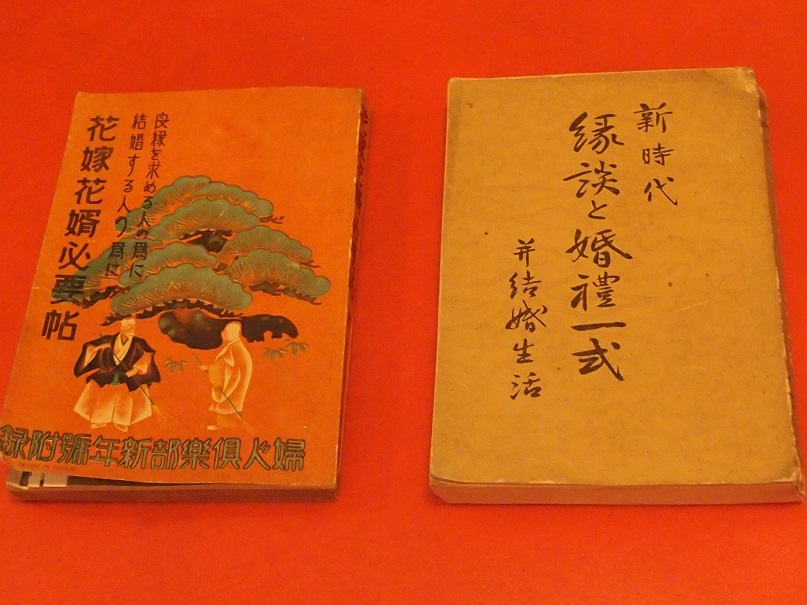 良縁を求める人の爲に
結婚する人の爲に
花嫁花婿必要帖
婦人倶樂部新年號附録
新時代
縁談と婚禮一式
并結婚生活